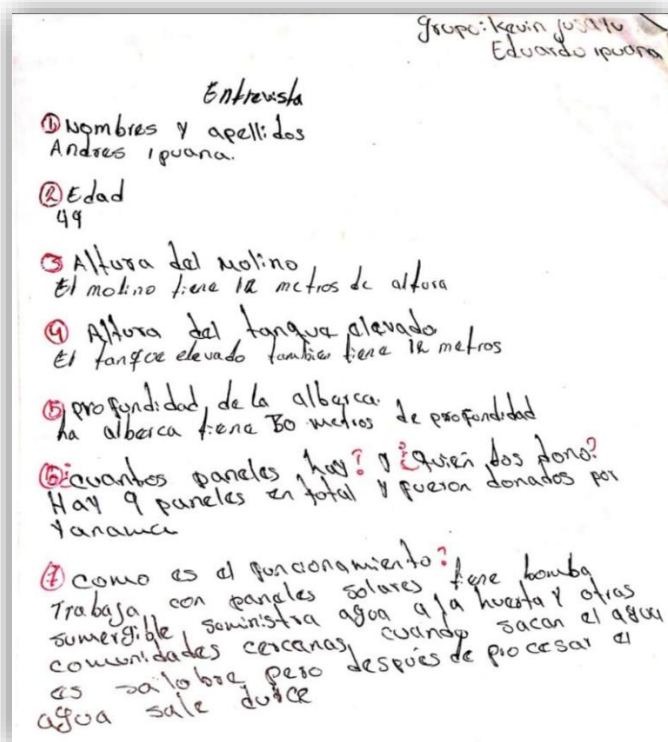 grupo: Kevin
Eduardo ipuana
Entrevista
① Nombres y apellidos
Andres ipuana.
② Edad
49
③ Altura del Molino
El molino tiene 12 metros de altura
④ Altura del tanque elevado
El tanque elevado tambien tiene 12 metros
⑤ profundidad de la alberca
La alberca tiene 30 metros de profundidad
⑥ ¿cuantos paneles hay? y ¿Quien los dono?
Hay 9 paneles en total y fueron donados por
⑦ como es el funcionamiento?
Trabaja con paneles solares tiene bomba
sumergible suministra agua a la huerta y otras
comunidades cercanas, cuando sacan el agua
es salobre pero después de procesar el
agua sale dulce